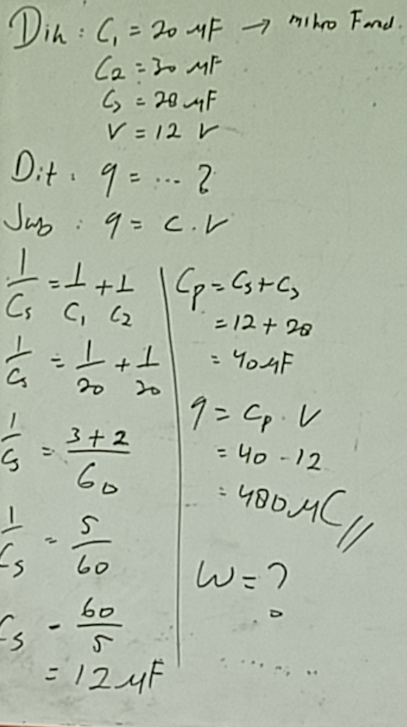 Dih : C₁ = 20 μF → mikro Farad.
C₂ = 30 μF
C₃ = 28 μF
V = 12 V
Dit : q = ... ?
Jwb : q = C.V
1/Cs = 1/C₁ + 1/C₂
1/Cs = 1/20 + 1/20
1/Cs = 3+2/60
1/Cs = 5/60
Cs = 60/5
= 12 μF
Cp = Cs + C₃
= 12 + 28
= 40 μF
q = Cp . V
= 40 . 12
= 480 μC //
W = ?